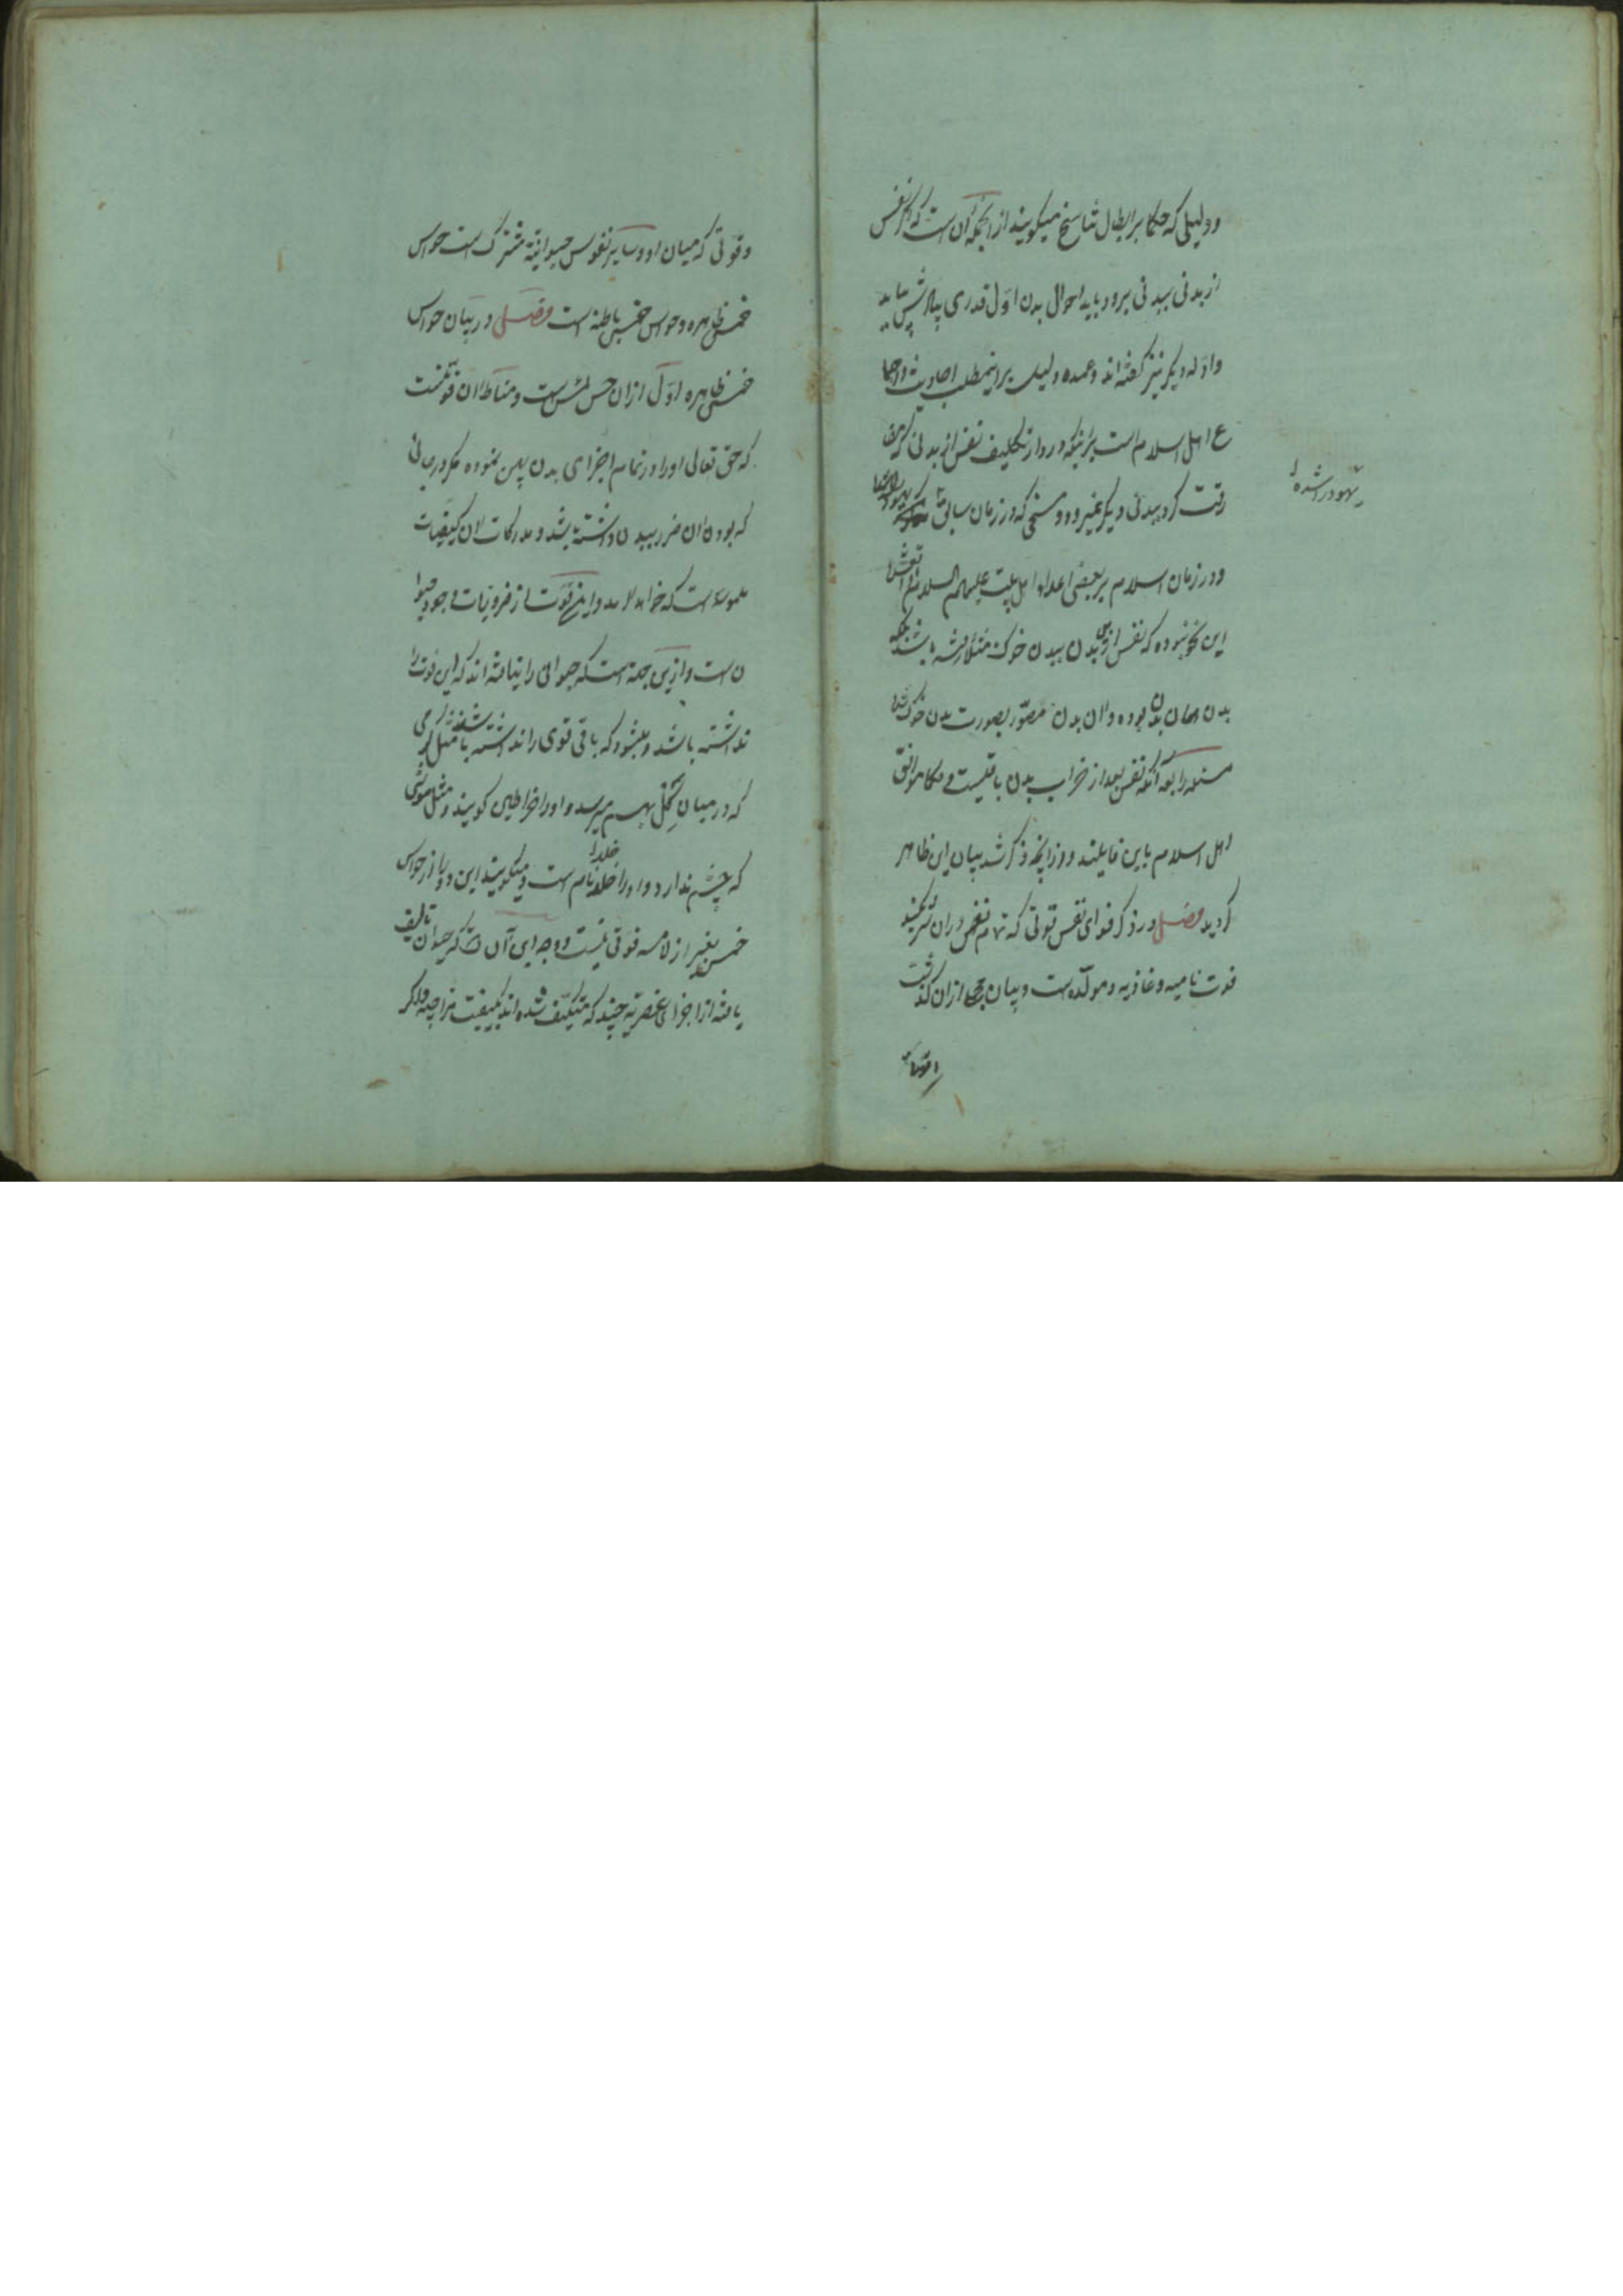 ودلیلی که حکما بر ابطال تناسخ میکویند از انجمله آن است که اکر نفس
از بدنی ببدنی برود باید احوال بدن اول قدری بیادش بیاید
وادله دیکر نیز کفته اند وعمده دلیل بر اینمطلب احادیث واجما
ع اهل اسلام است بر اینکه در دار تکلیف نفس از بدنی که مفا
رقت کرد ببدنی دیکر نمیرود ومسخی که در زمان سابق
یهود را شده
ودر زمان اسلام بر بعضی اعداء اهل بیت علیهم السلام
این نحو نبوده که نفس از بدن ببدن خوک مثلا رفته باشد بلکه
بدن همان بدن بوده وآن بدن مصور بصورت بدن خوک شد
مسئله رابعه آنکه نفس بعد از خراب بدن باقیست و حکما موافق
اهل اسلام باین قایلند واز انچه ذکر شد بیان این ظاهر
کردید فصل در ذکر قوای نفس قوتی که تمام نفوس در ان شریکند
قوت نامیه وغاذیه ومولده است وبیان از ان کذشت
وقوتی که میان او وسایر نفوس حیوانیة مشترک است حواس
خمس ظاهره وحواس خمس باطنه است فصل در بیان حواس
خمس ظاهره اول از ان حس لمس است ومناط ان قوتست
که حق تعالی اورا در تمام اجزای بدن پهن نموده مکر در جائی
که بودن ان ضرر ببدن داشته باشد ومدرکات ان کیفیات
ملموسه است که خواهد آمد واین قوت از ضروریات وجود حیوا
ن است وازین جهة است که حیوانی را نیافته اند که این قوت را
نداشته باشد ومیشود که باقی قوی را نداشته باشد مثل کرمی
که در میان کل بهم میرسد و اورا خراطین کویند ومثل موشی
که چشم ندارد واورا خلد نام است ومیکویند این دو را از حواس
خمس بغیر از لامسه قوتی نیست ووجه این آن است که حیوان تالیف
یافته از اجزای عنصریه چند که متکیف شده اند بکیفیت مزاجیه واکر